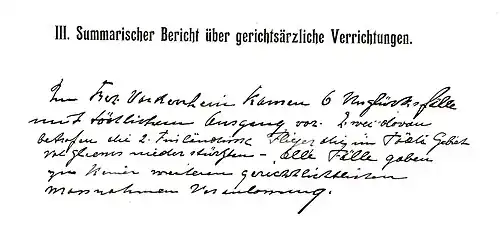 III. Summarischer Bericht über gerichtsärzliche Verrichtungen.
Im Bez. Vorderrhein kamen 6 Unglücksfälle
mit tödtlichem Ausgang vor. Zwei davon
betrafen die 2. Finländische Flieger die im Tödi Gebiet
niederstürzten – Alle Fälle gaben
zu keiner weiteren gerichtlichen
Massnahmen Veranlassung.